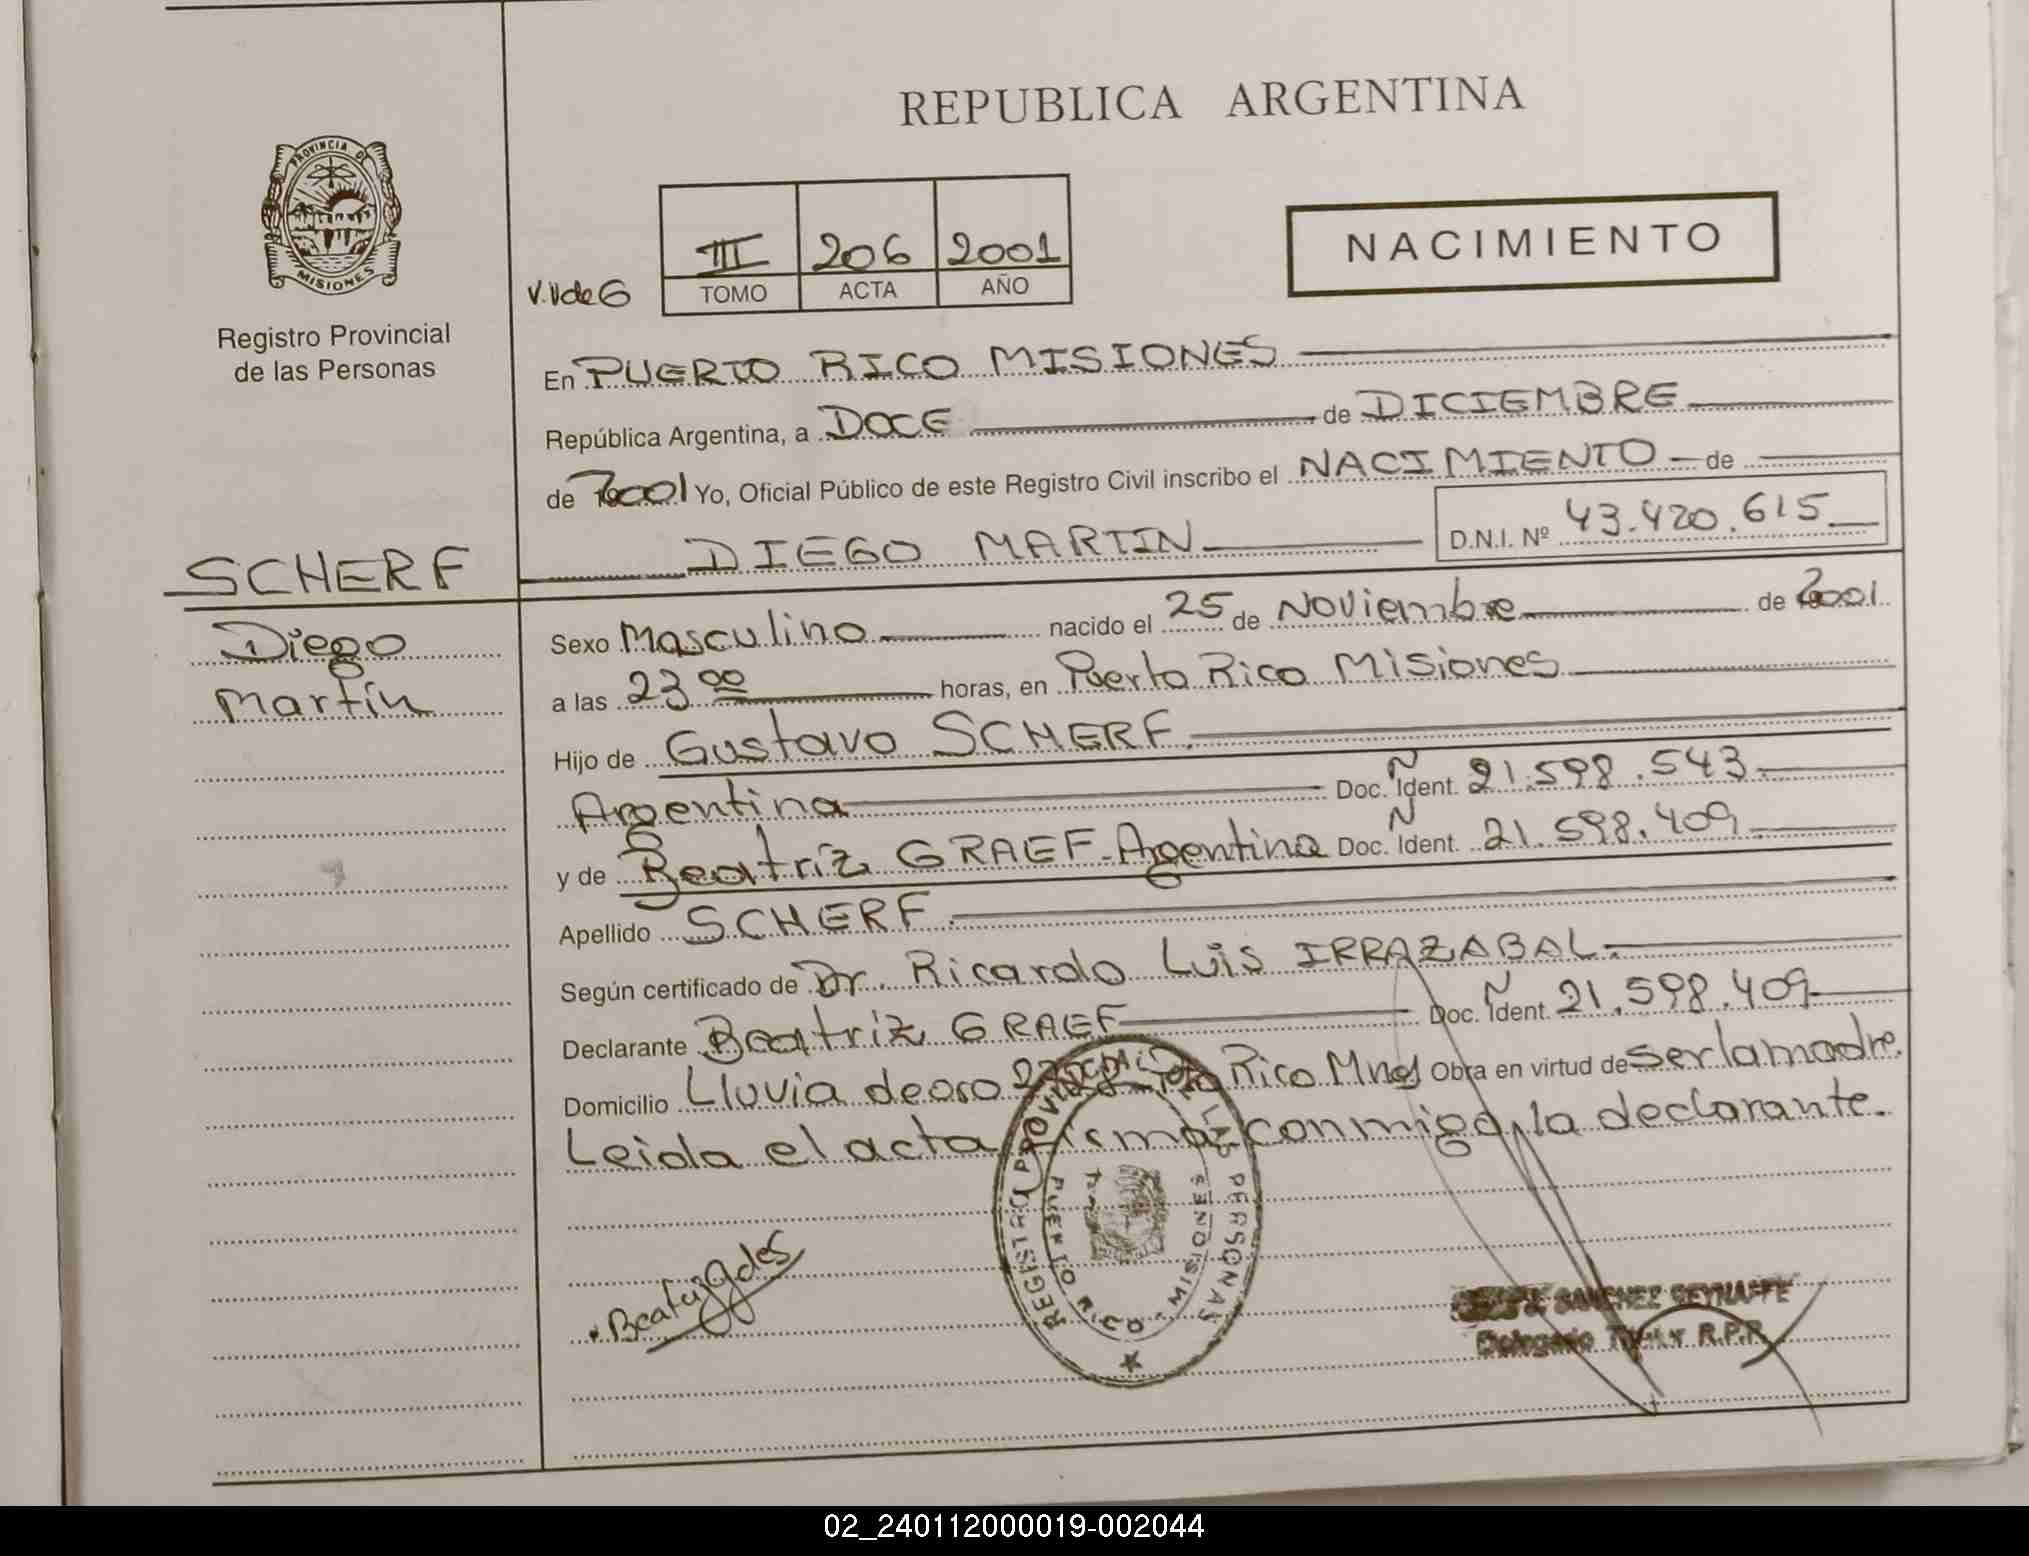 REPUBLICA ARGENTINA
PROVINCIA DE
MISIONES
Registro Provincial
de las Personas
V.V de G
III 206 2001
TOMO ACTA AÑO
NACIMIENTO
En PUERTO RICO MISIONES
República Argentina, a DOCE de DICIEMBRE
de 2001 Yo, Oficial Público de este Registro Civil inscribo el NACIMIENTO de
DIEGO MARTIN D.N.I. Nº 43.420.615
SCHERF
Diego
Martín
Sexo Masculino nacido el 25 de Noviembre de 2001.
a las 23 00 horas, en Puerto Rico Misiones
Hijo de Gustavo SCHERF.
Argentina Doc. Ident. Ñ 21.598.543.
y de Beatríz GRAEF-Argentina Doc. Ident. Ñ 21.598.409.
Apellido SCHERF.
Según certificado de Dr. Ricardo Luis IRRAZABAL.
Declarante Beatriz GRAEF Doc. Ident. Ñ 21.598.409
Domicilio Lluvia de oro Rico Mnes Obra en virtud de ser la madre.
Leida el acta conmigo, la declarante.
REGISTRO PERSONAS
PUERTO RICO MISIONES
SANCHEZ REYNAFFE
Delegado Titular R.P.P.
02_240112000019-002044